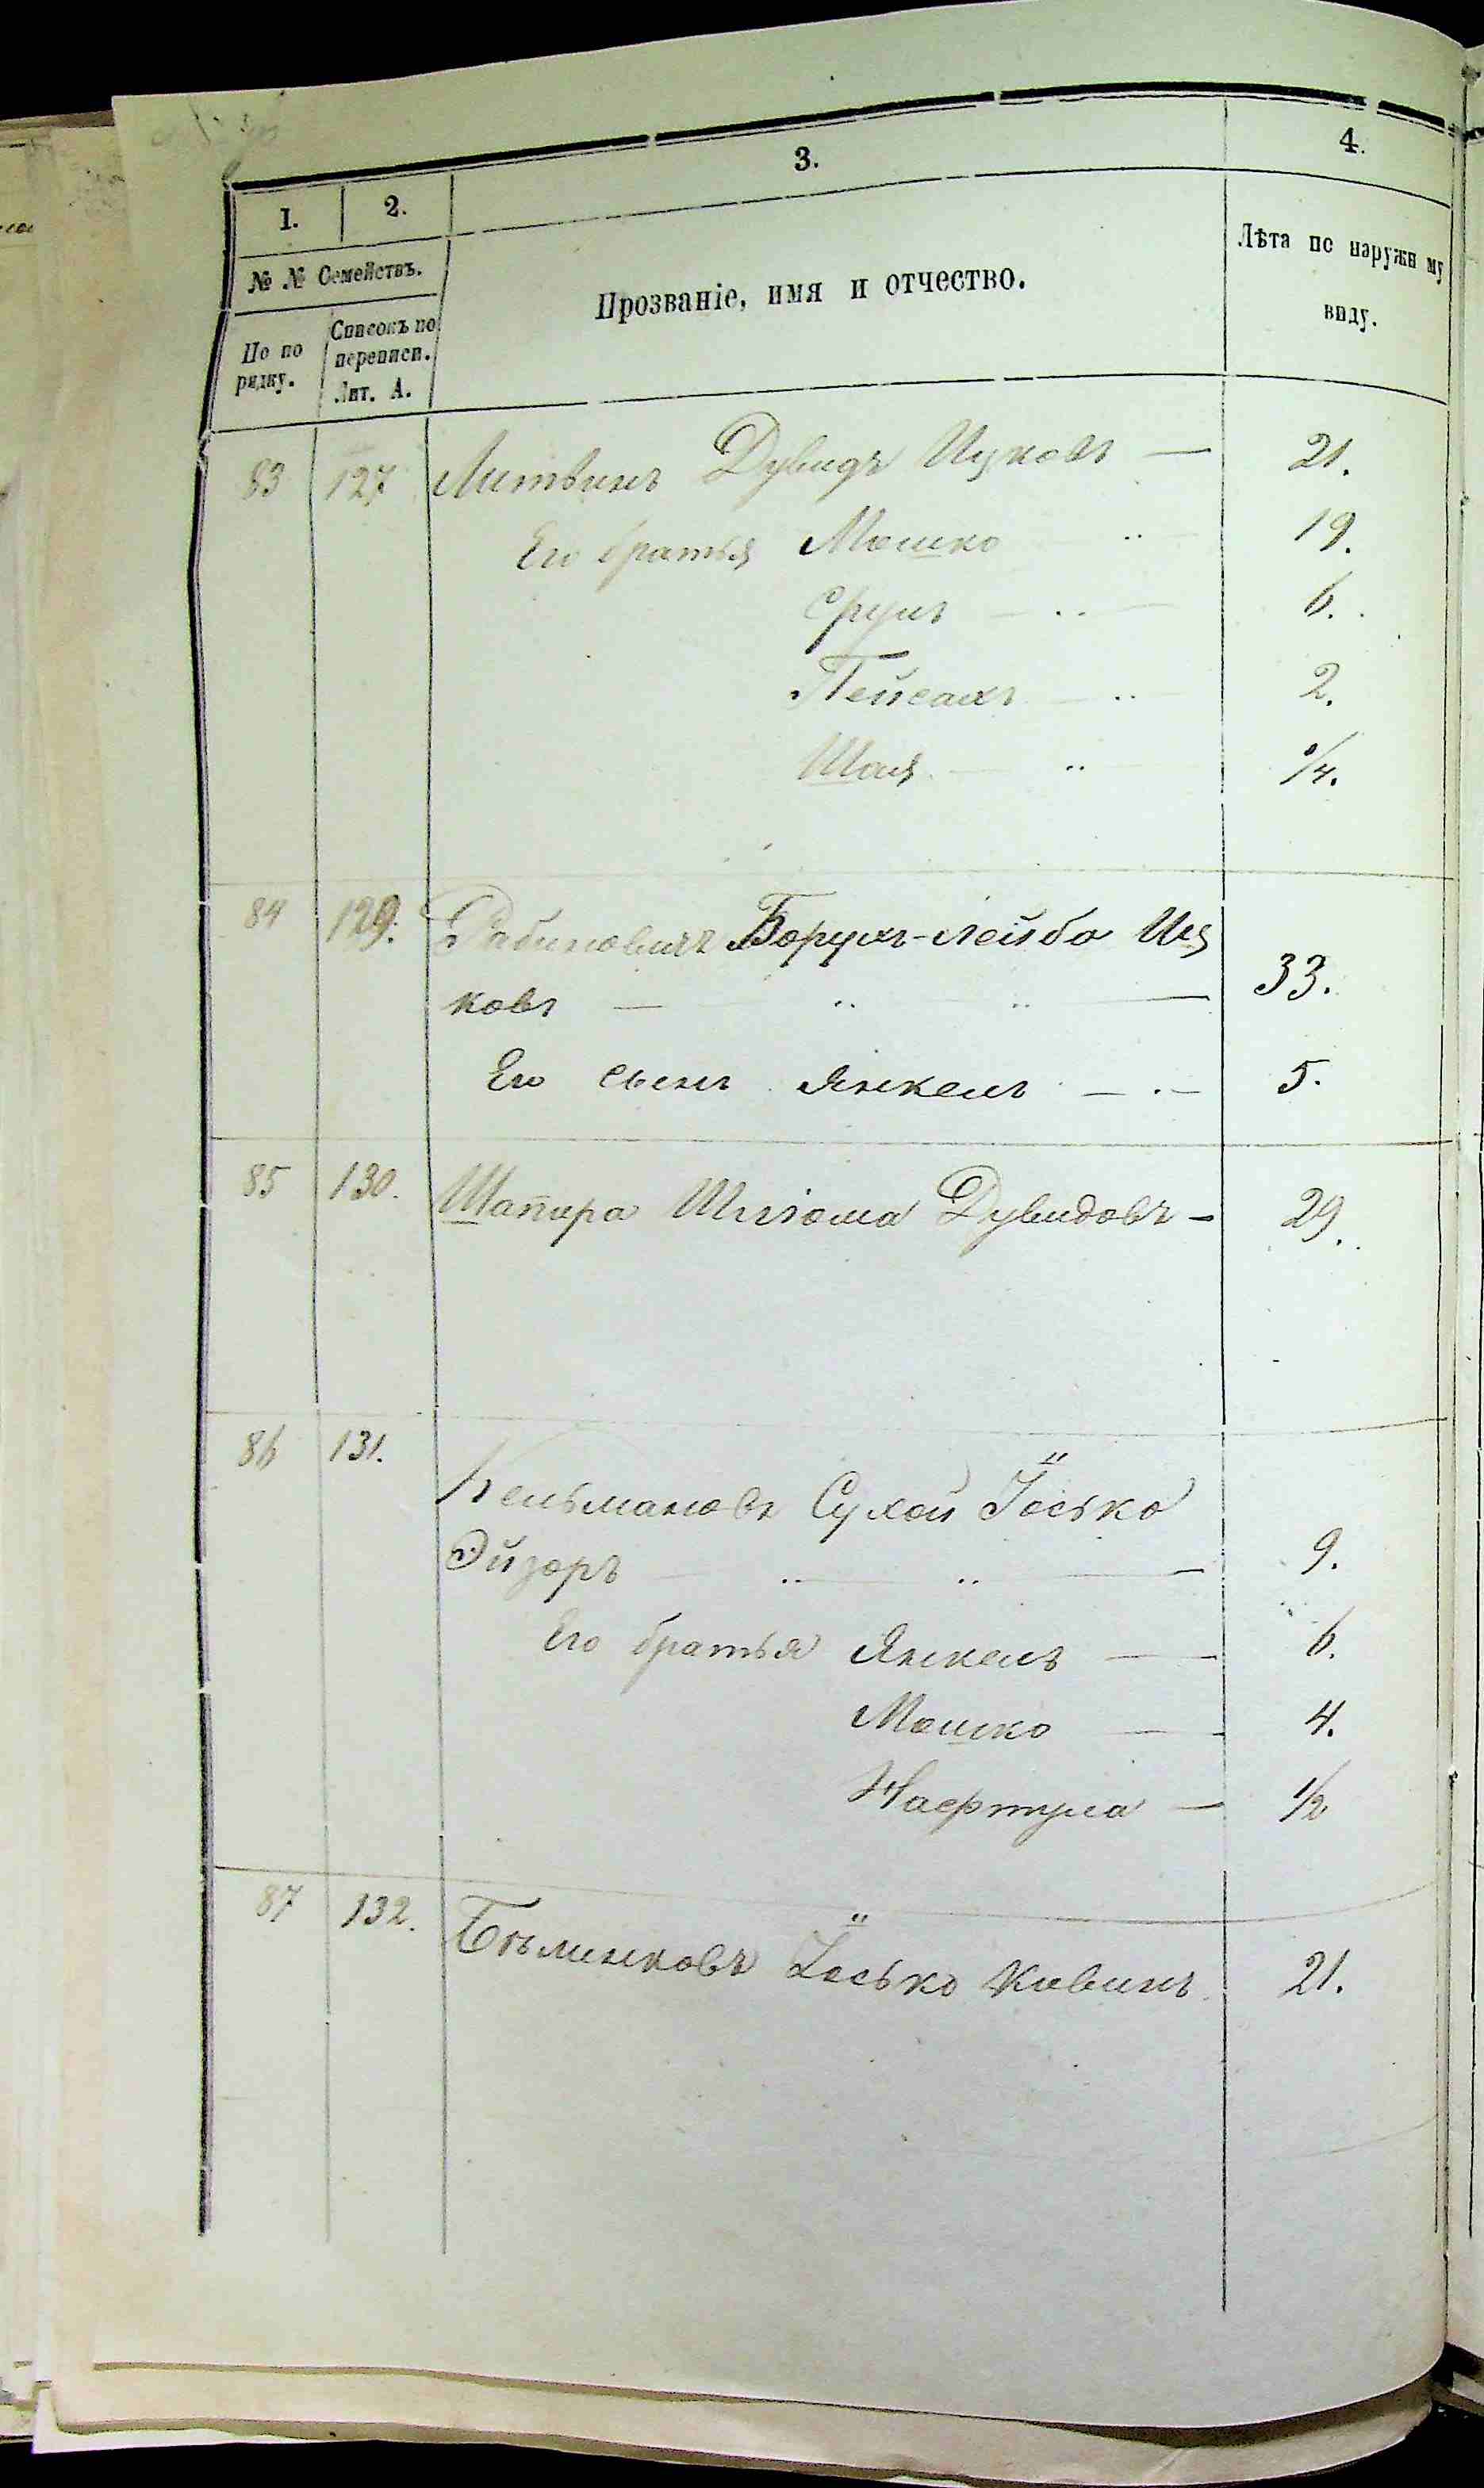 3.
4.
1. 2.
№ № Семействъ.
По по рядку.
Списокъ по переписи. Лит. А.
Прозваніе, имя и отчество.
Лѣта по наружн му
виду.
83 127 Литвинъ Дувидъ Ицковъ — 21.
Его братья Мошко — 19.
Сруль — 6.
Пейсахъ — 2.
Шая — 1/4.
84 129. Рабиновичъ Борухъ-Лейба Иц
ковъ — 33.
Его сынъ Янкель — 5.
85 130. Шапира Шлiома Дувидовъ — 29.
86 131.
Кельмановъ Сухой Іосько
Эйзоръ — 9.
Его братья Янкель — 6.
Мошко — 4.
Нафтула — 1/2
87 132. Бѣлинковъ Іосько Кивинъ 21.